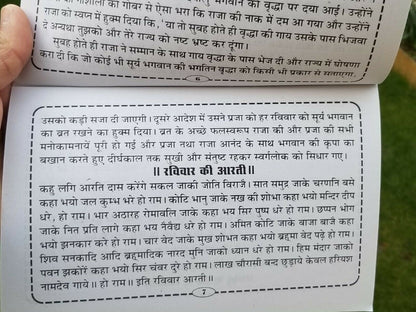 गौशाला की गोबर से ऐसा भरा कि राजा की नाक में दम आ गया और उन्होंने
भगवान की वृद्धा पर दया आई। उन्होंने
राजा को स्वप्न में हुक्म दिया कि, 'या तो सुबह होते ही वृद्धा की गाय उसके पास भिजवा
दे अन्यथा तुझको और तेरे राज्य को नष्ट भ्रष्ट कर दूंगा।
सुबह होते ही राजा ने सम्मान के साथ गाय वृद्धा के पास भेज दी और राज्य में घोषणा
करा दी कि जो कोई भी सूर्य भगवान की भगतिन वृद्धा को किसी भी प्रकार से सताएगा
6
उसको कड़ी सजा दी जाएगी। दूसरे आदेश में उसने प्रजा को हर रविवार को सूर्य भगवान
का व्रत रखने का हुक्म दिया। व्रत के अच्छे फलस्वरूप राजा की और प्रजा की सभी
मनोकामनायें पूरी हो गई और प्रजा तथा राजा आनंद के साथ भगवान की कृपा का
बखान करते हुए दीर्घकाल तक सुखी और संतुष्ट रहकर स्वर्गलोक को सिधार गए।
॥ रविवार की आरती॥
कहु लगि आरति दास करेंगे सकल जाकी जोति विराजै। सात समुद्र जाके चरणनि बसे
कहा भयो जल कुम्भ भरे हो राम। कोटि भानु जाके नख की शोभा कहा भयो मन्दिर दीप
धरे, हो राम। भार अठारह रोमावलि जाके कहा भय सिर पुष्प धरे हो राम। छप्पन भोग
जाके नित प्रति लागे कहा भय नैवेद्य धरे हो राम। अमित कोटि जाके बाजा बाजे कहा
भयो झनकार करे हो राम। चार वेद जाके मुख शोभत कहा भयो ब्रहमा वेद पढ़े हो राम।
शिव सनकादि आदि ब्रहमादिक नारद मुनि जाको ध्यान धरे हो राम। हिम मंदार जाको
पवन झकोरें कहा भयो सिर चंवर दुरे हो राम। लाख चौरासी बन्द छुड़ाये केवल हरियश
नामदेव गाये॥ हो राम॥ इति रविवार आरती॥
7